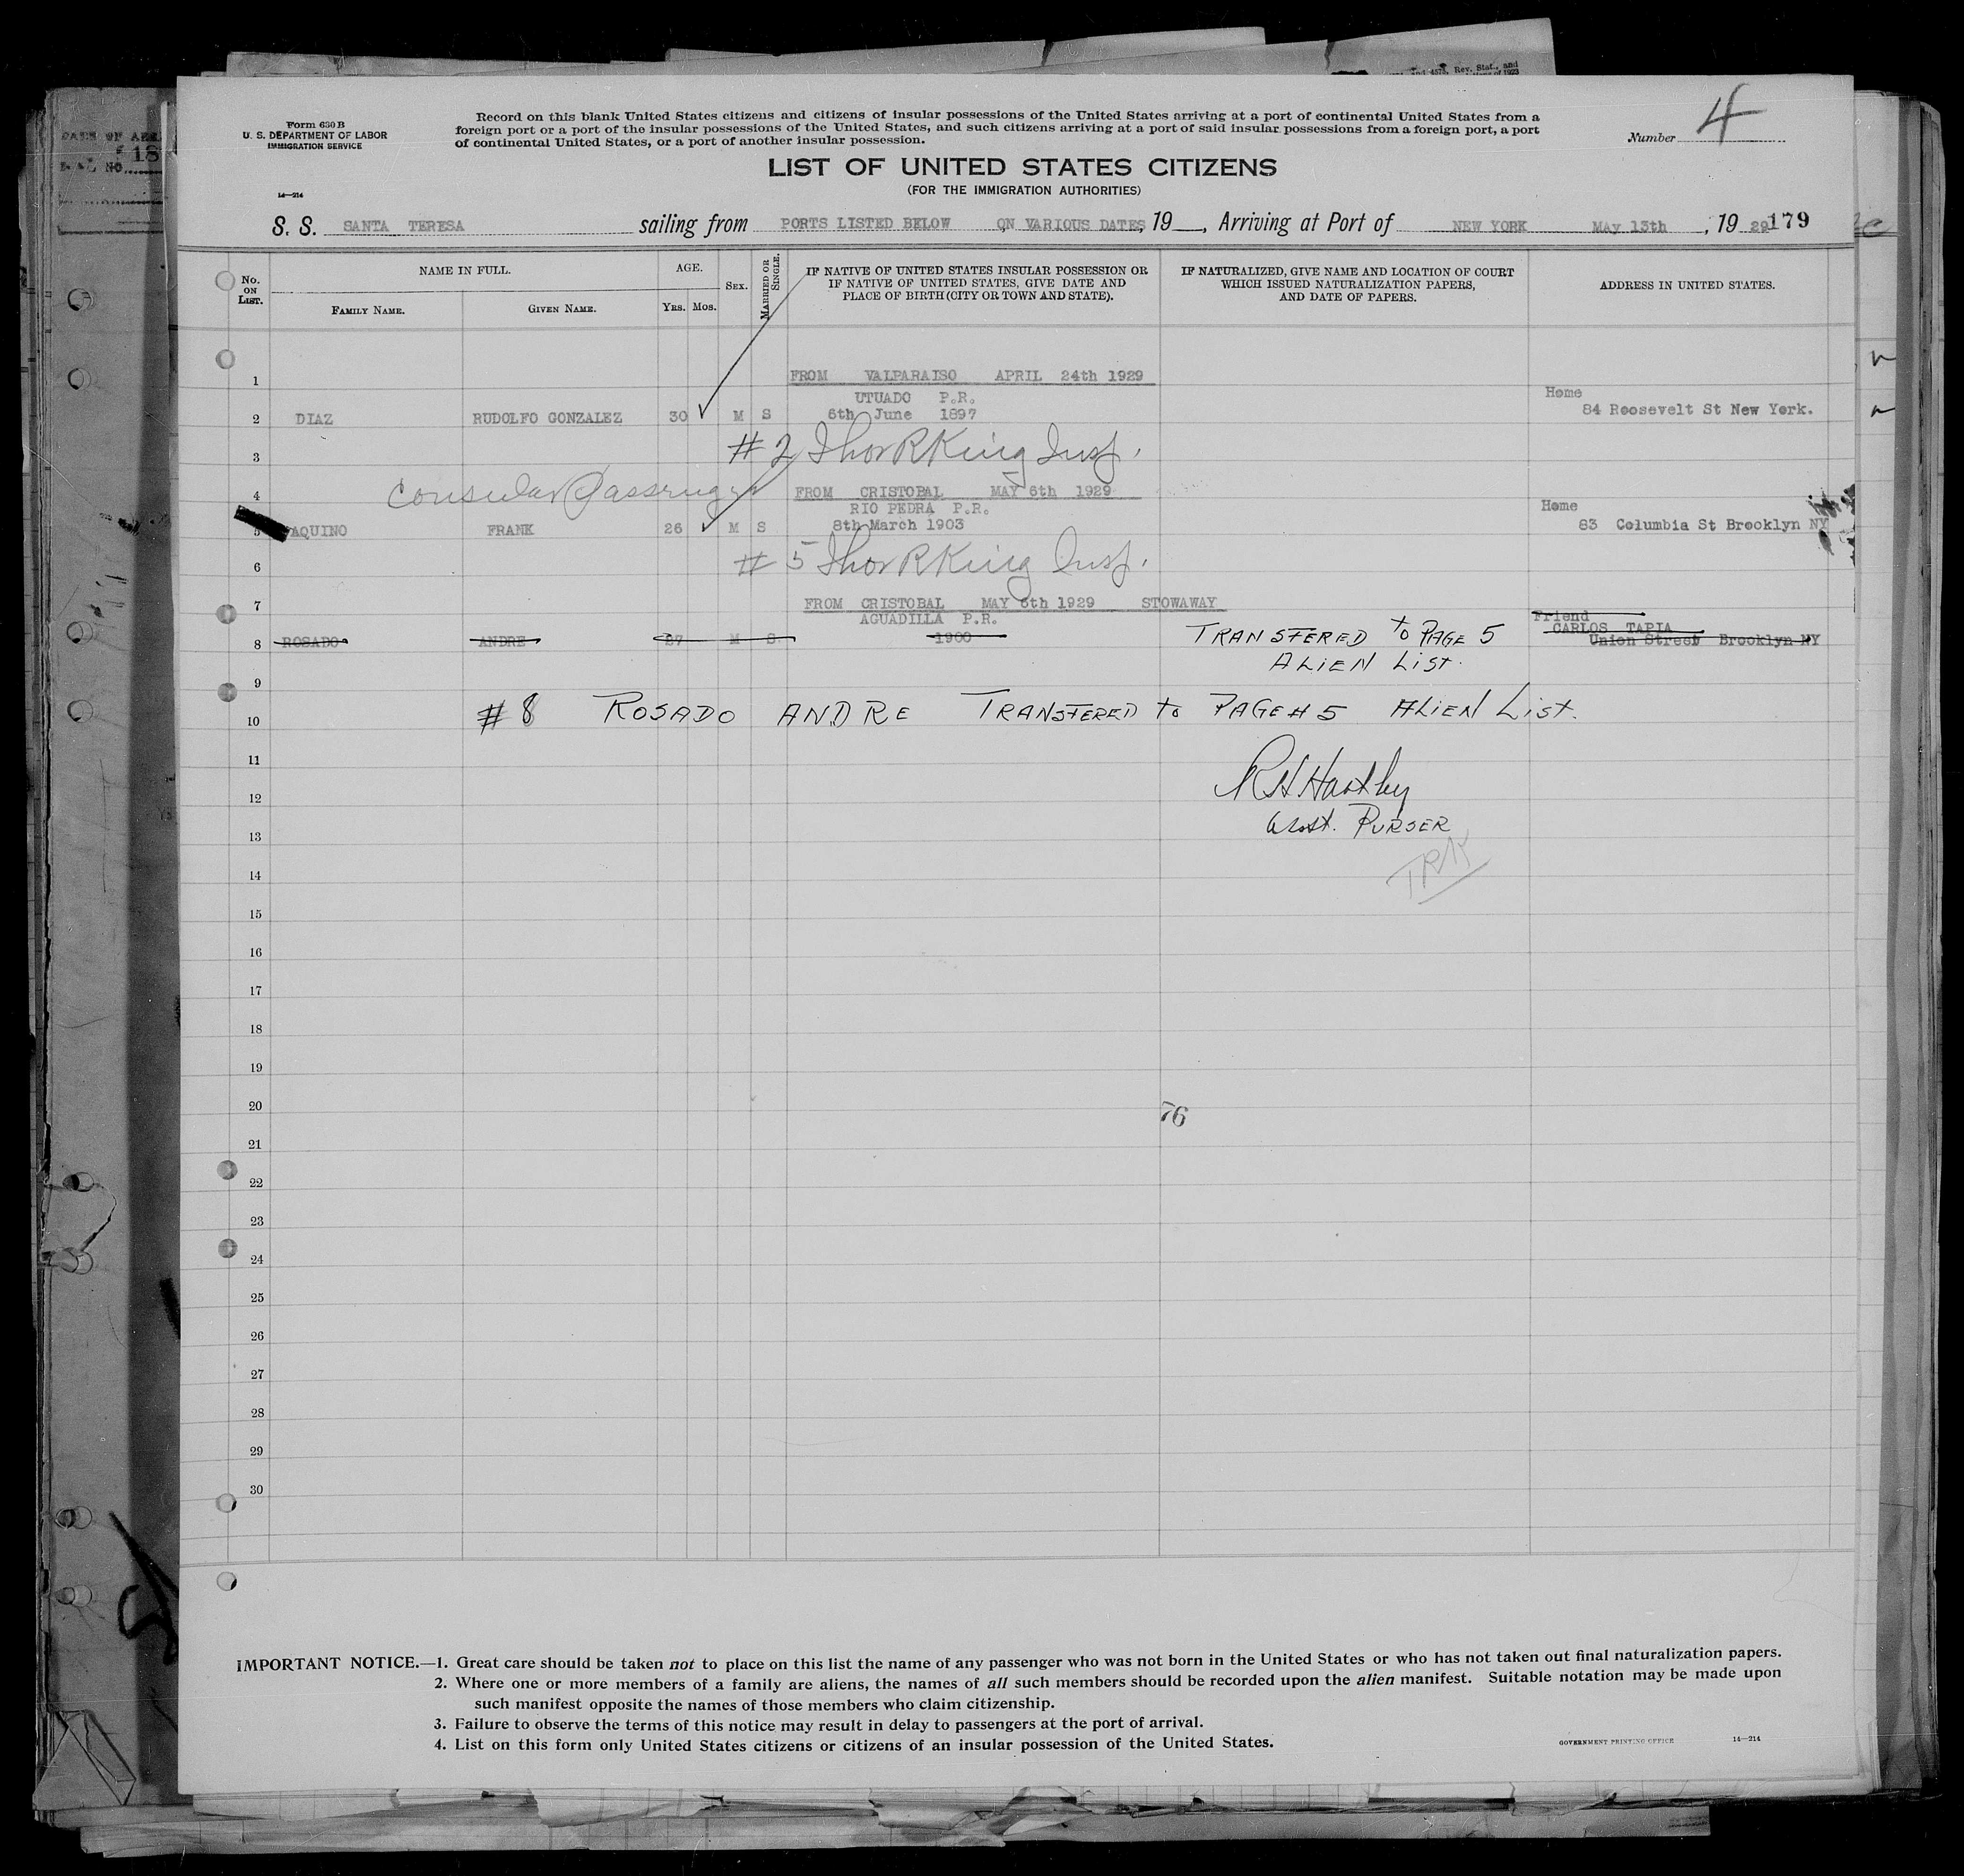 Form 630 B
U. S. DEPARTMENT OF LABOR
IMMIGRATION SERVICE
14—214
Record on this blank United States citizens and citizens of insular possessions of the United States arriving at a port of continental United States from a
foreign port or a port of the insular possessions of the United States, and such citizens arriving at a port of said insular possessions from a foreign port, a port
of continental United States, or a port of another insular possession.
Number 4
LIST OF UNITED STATES CITIZENS
(FOR THE IMMIGRATION AUTHORITIES)
S. S. SANTA TERESA sailing from PORTS LISTED BELOW ON VARIOUS DATES, 19__, Arriving at Port of NEW YORK MAY 13th, 19 29 179
No. ON LIST.
NAME IN FULL.
FAMILY NAME.
GIVEN NAME.
AGE.
YRS. MOS.
SEX.
MARRIED OR SINGLE.
IF NATIVE OF UNITED STATES INSULAR POSSESSION OR
IF NATIVE OF UNITED STATES, GIVE DATE AND
PLACE OF BIRTH (CITY OR TOWN AND STATE).
IF NATURALIZED, GIVE NAME AND LOCATION OF COURT
WHICH ISSUED NATURALIZATION PAPERS,
AND DATE OF PAPERS.
ADDRESS IN UNITED STATES.
1 FROM VALPARAISO APRIL 24th 1929
UTUADO P.R. Home
2 DIAZ RUDOLFO GONZALEZ 30 M S 6th June 1897 84 Roosevelt St New York.
3 #2 Thor R King Insp.
4 Consular Passenger FROM CRISTOBAL MAY 6th 1929
RIO PEDRA P.R. Home
5 AQUINO FRANK 26 M S 8th March 1903 83 Columbia St Brooklyn NY
6 #5 Thor R King Insp.
7 FROM CRISTOBAL MAY 6th 1929 STOWAWAY
AGUADILLA P.R. Friend
CARLOS TAPIA
8 ROSADO ANDRE 27 M S 1900 TRANSFERED to PAGE 5 Union Street Brooklyn NY
ALIEN LIST.
9
10 #8 ROSADO ANDRE TRANSFERED to PAGE # 5 ALIEN LIST.
11
12 R H Hartley
13 Asst. PURSER
14 TRK
15
16
17
18
19
20 76
21
22
23
24
25
26
27
28
29
30
IMPORTANT NOTICE.—1. Great care should be taken not to place on this list the name of any passenger who was not born in the United States or who has not taken out final naturalization papers.
2. Where one or more members of a family are aliens, the names of all such members should be recorded upon the alien manifest. Suitable notation may be made upon
such manifest opposite the names of those members who claim citizenship.
3. Failure to observe the terms of this notice may result in delay to passengers at the port of arrival.
4. List on this form only United States citizens or citizens of an insular possession of the United States.
GOVERNMENT PRINTING OFFICE 14—214